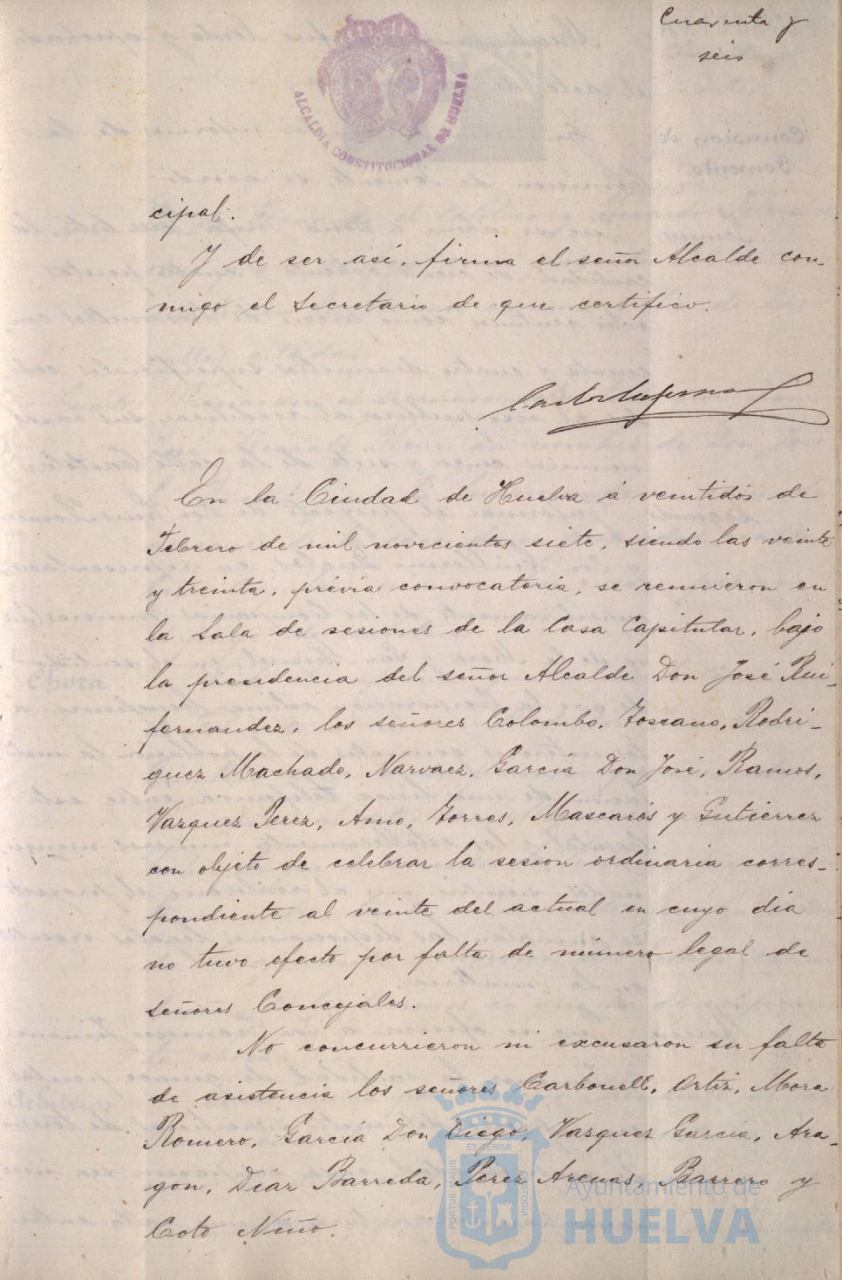 Cuarenta y
seis
ALCALDIA CONSTITUCIONAL DE HUELVA
cipal.
Y de ser así, firma el señor Alcalde con-
migo el Secretario de que certifico.
En la Ciudad de Huelva á veintidós de
Febrero de mil novecientos siete, siendo las veinte
y treinta, prévia convocatoria, se reunieron en
la Sala de sesiones de la Casa Capitular, bajo
la presidencia del señor Alcalde Don José Rui-
fernandez, los señores Colombo, Toscano, Rodri-
guez Machado, Narvaez, García Don José, Ramos,
Vazquez Perez, Amo, Torres, Mascarós y Gutierrez
con objeto de celebrar la sesion ordinaria corres-
pondiente al veinte del actual en cuyo dia
no tuvo efecto por falta de número legal de
señores Concejales.
No concurrieron ni excusaron su falta
de asistencia los señores Carbonell, Ortiz, Mora
Romero, García Don Diego, Vazquez García, Ara-
gon, Diaz Barreda, Perez Arenas, Barrero y
Coto Niño.
PORTUS MARIS
ET TERRAE
CUSTODIA
Ayuntamiento de
HUELVA